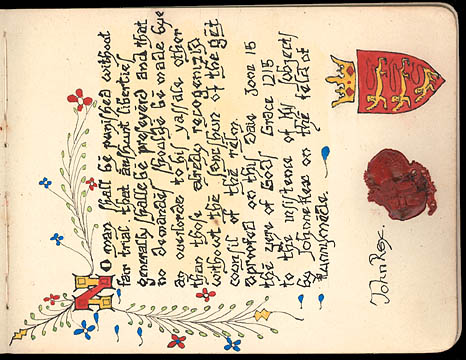 No man shall be punished without
far trial that anshunt liberties
generally shalle be preseverd and that
no demandes shoulde be made bye
an overlorde to his vassale other
than those alredy recognized
without the sanshun of the gret
council of the relm
aproved on this Date Joon 15
the yere of Gods Grace 1215
to the insistence of his subjects
by Johnne Rex on the feld of
Runnymeade.
John Rex.